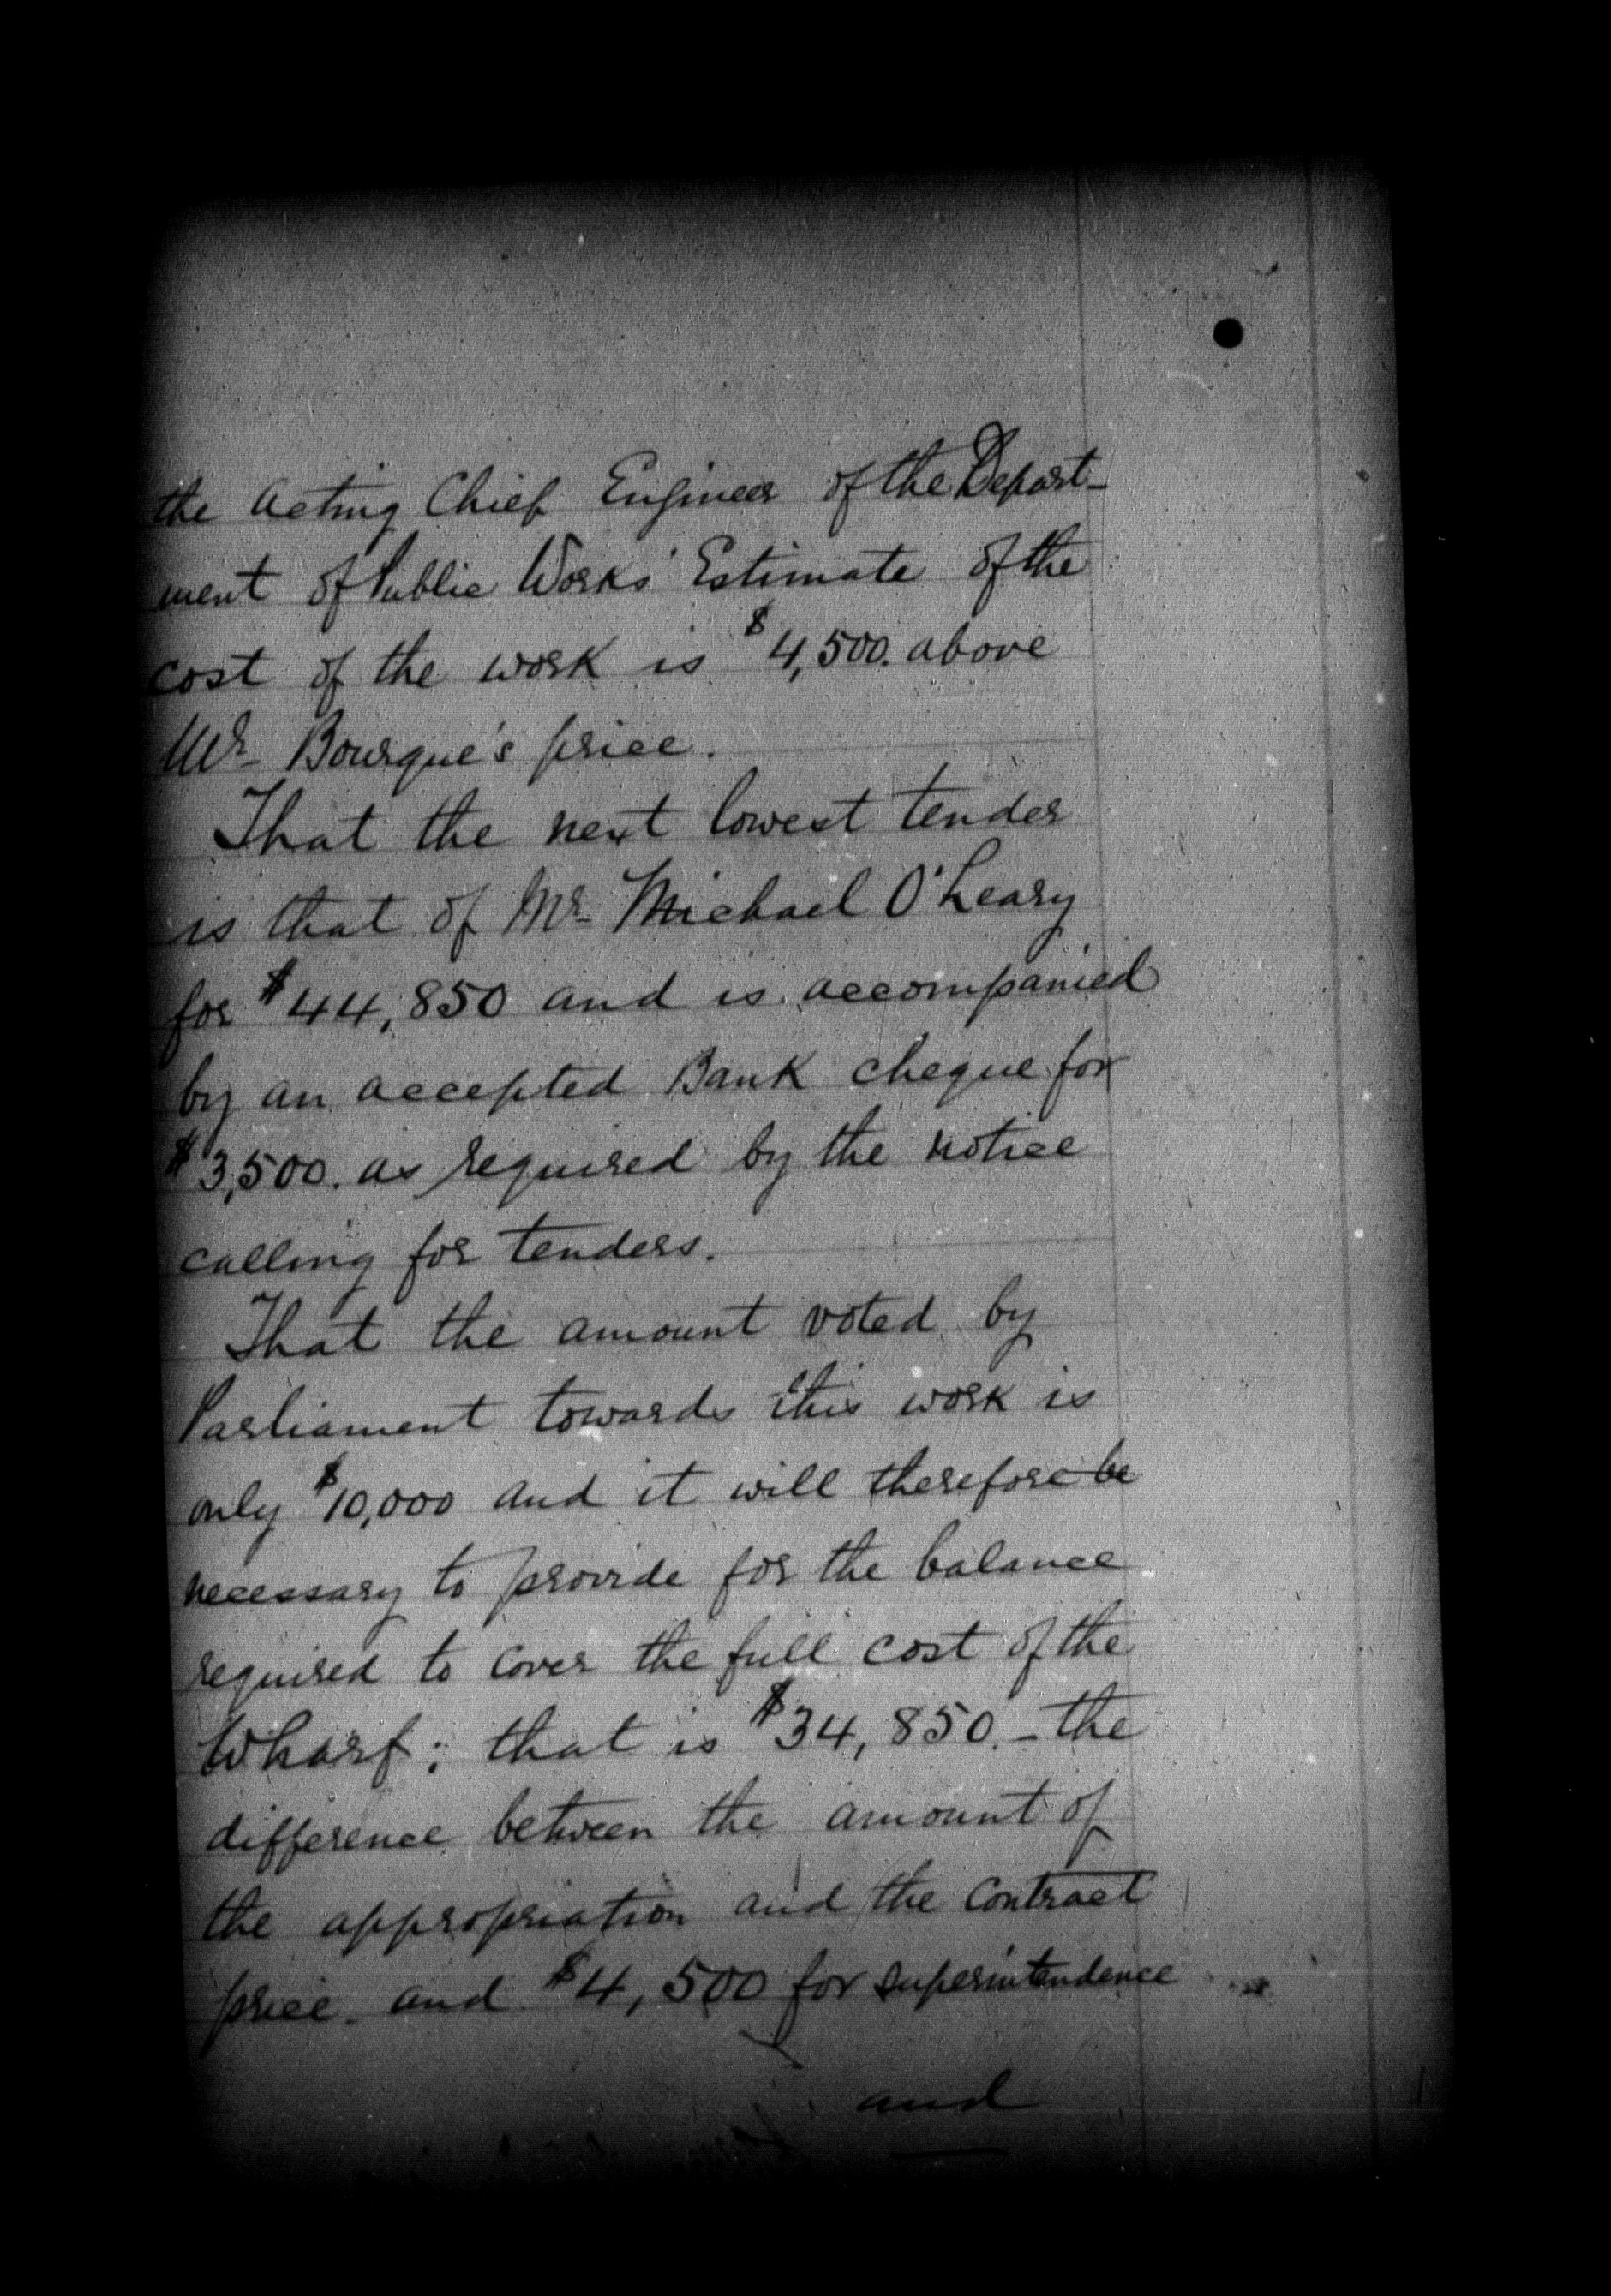 the Acting Chief Engineer of the Depart-
ment of Public Works' Estimate of the
cost of the work is $4,500. above
Mr Bourque's price.
That the next lowest tender
is that of Mr Michael O'Leary
for $44,850 and is accompanied
by an accepted Bank cheque for
$3,500. as required by the notice
calling for tenders.
That the amount voted by
Parliament towards this work is
only $10,000 and it will therefore be
necessary to provide for the balance
required to cover the full cost of the
Wharf; that is $34,850.- the
difference between the amount of
the appropriation and the contract
price and $4,500 for superintendence
and